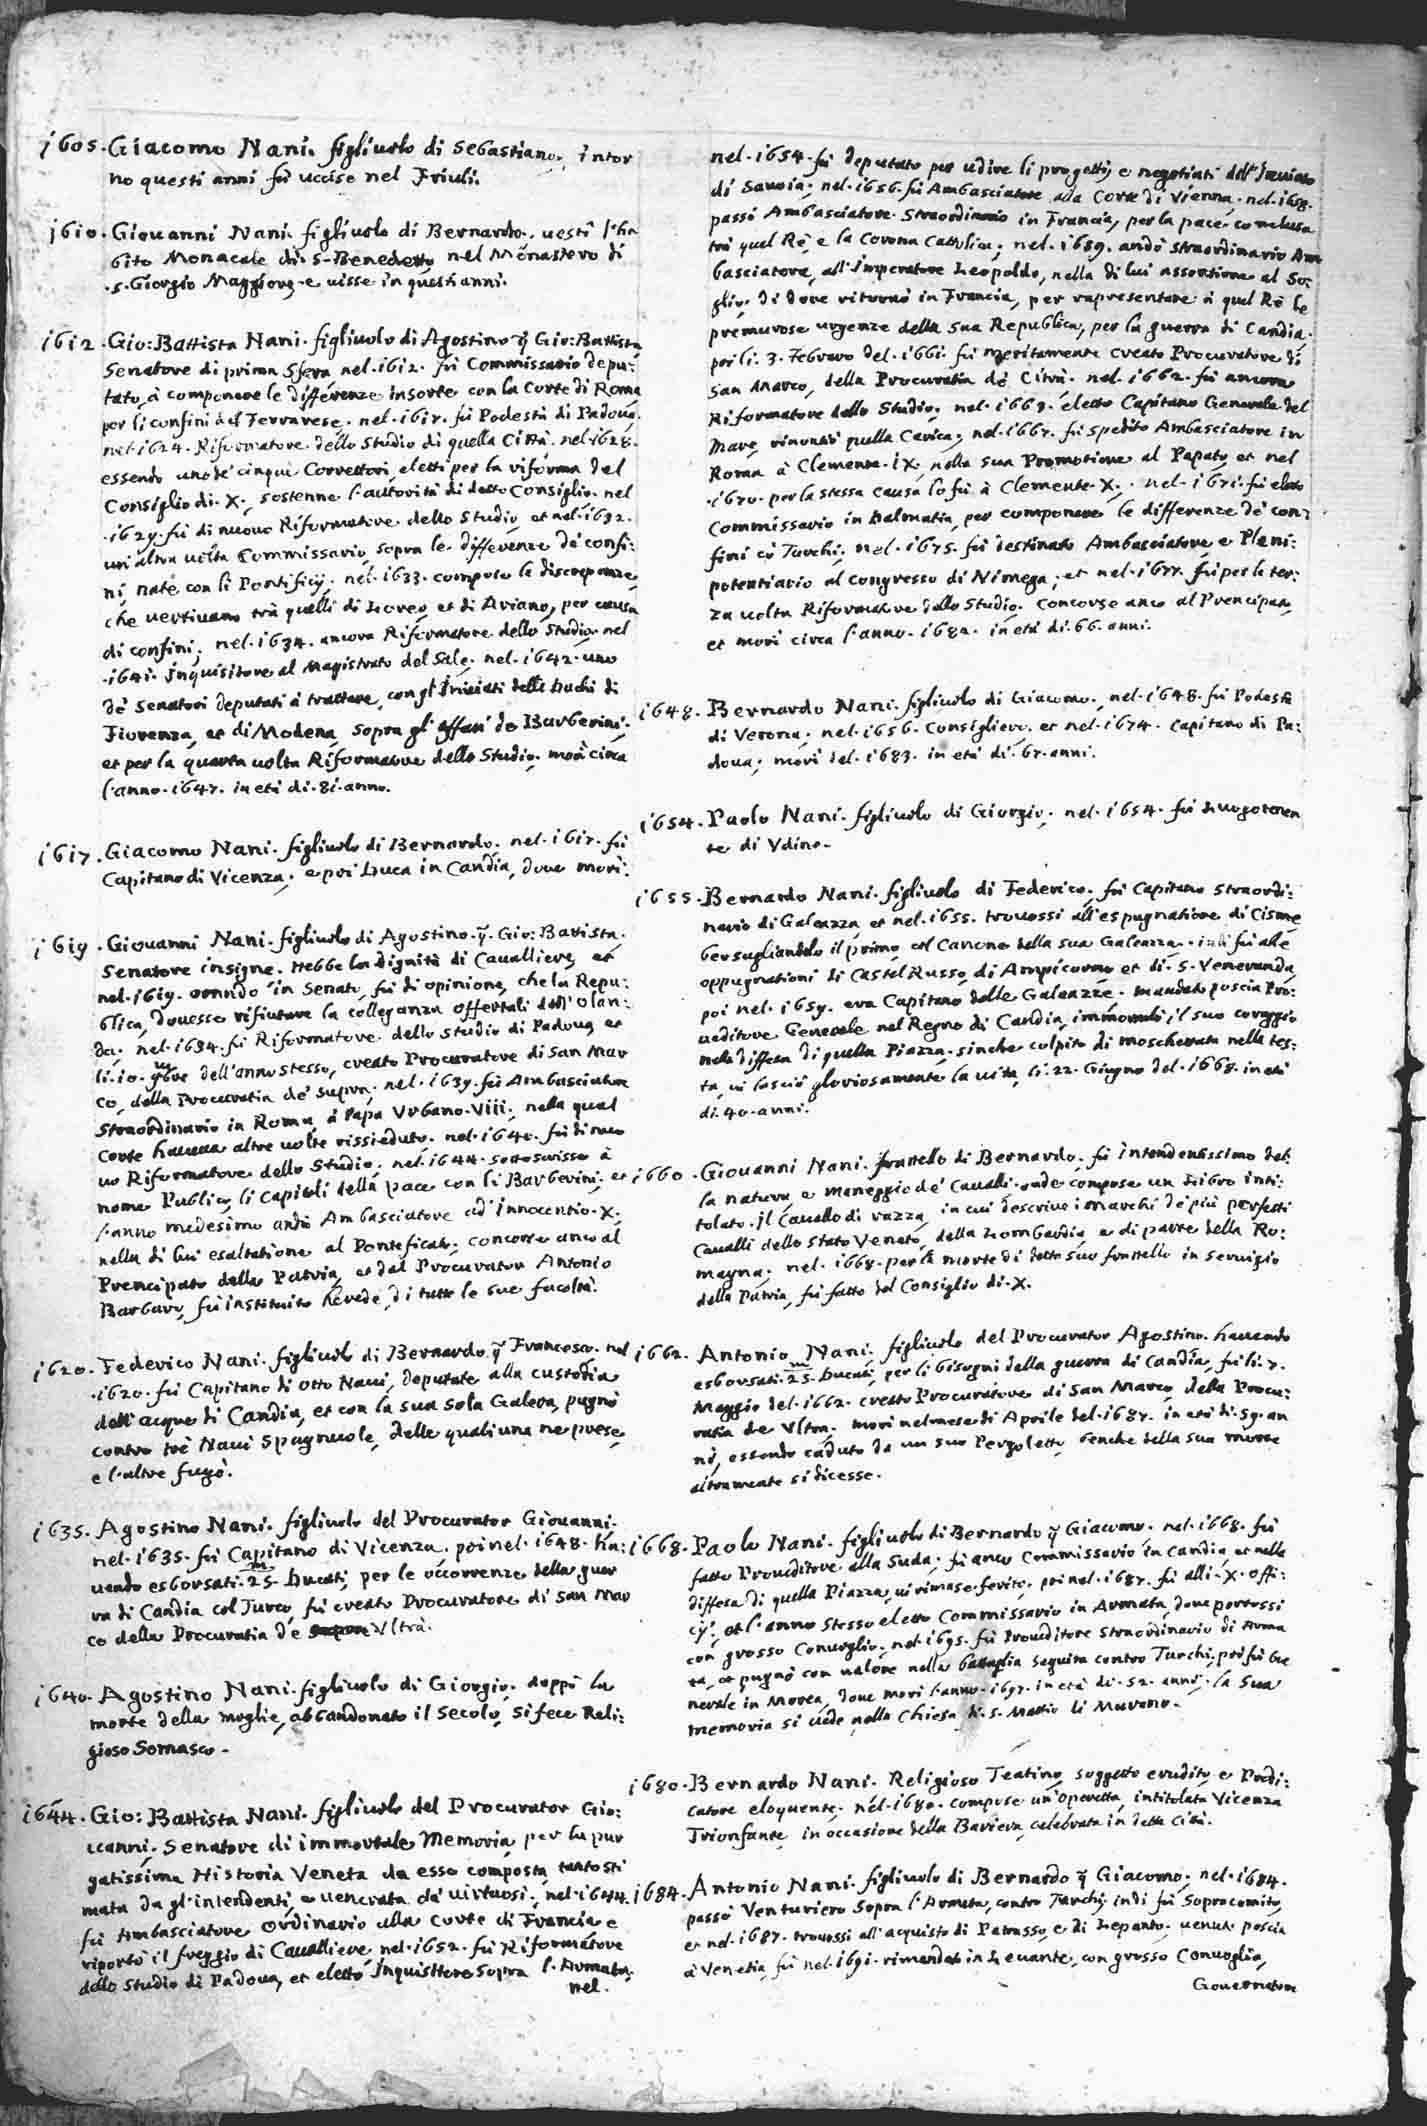 1605. Giacomo Nani. figliuolo di Sebastiano. intor
no questi anni fù ucciso nel Friuli.
1610. Giouanni Nani. figliuolo di Bernardo. uestì l'ha
bito Monacale di S. Benedetto, nel Monastero di
S. Giorgio Maggiore, e uisse in questi anni.
1612. Gio: Battista Nani. figliuolo di Agostino q̃ Gio: Battista
Senatore di prima Sfera nel. 1612. fù Commissario depu:
tato, à componere le differenze insorte con la Corte di Roma
per li confini del Ferrarese. nel. 1617. fù Podestà di Padoua.
nel. 1624. Riformatore dello Studio di quella Città. nel. 1628.
essendo uno de cinque Correttori, eletti per la riforma del
Consiglio di. X. sostenne l'autorità di detto Consiglio. nel
.1629. fù di nuouo Riformatore dello Studio, et nel. 1632.
un'altra uolta Commissario, sopra le differenze de confi:
ni, nate con li Pontificij. nel. 1633. compose le discrepanze,
che uertiuano trà quelli di Loreo, et di Ariano, per causa
di confini; nel. 1634. ancora Riformatore dello Studio. nel
.1641. Inquisitore al Magistrato del Sale. nel. 1642. uno
de Senatori deputati à trattare, con gl'Inuiati delli Duchi di
Fiorenza, et di Modena, sopra gl'affari de Barberini.
et per la quarta uolta Riformatore dello Studio. morì circa
l'anno. 1647. in età di. 81. anno.
1617. Giacomo Nani. figliuolo di Bernardo. nel. 1617. fù
Capitano di Vicenza. e poi Duca in Candia, doue morì.
1619. Giouanni Nani. figliuolo di Agostino. q̃. Gio: Battista.
Senatore insigne. Hebbe la dignità di Caualliere, et
nel. 1619. orando in Senato, fù di opinione, che la Repu:
blica, douesse rifiutare la colleganza offertali dall'Olan:
da. nel. 1634. fù Riformatore dello Studio di Padoua, et
li. 10. 9bre dell'anno stesso, creato Procuratore di San Mar
co, della Procuratia de supra. nel. 1639. fù Ambasciator
Straordinario in Roma, à Papa Vrbano. VIII. nella qual
Corte haueua altre uolte rissieduto. nel. 1640. fù di nuo
uo Riformatore dello Studio. nel. 1644. sottoscrisse à
nome Publico, li Capitoli della pace con li Barberini. et
l'anno medesimo andò Ambasciatore ad Innocentio. X.
nella di lui esaltatione al Ponteficato. concorse anco al
Prencipato della Patria, et dal Procurator Antonio
Barbaro, fù instituito herede, di tutte le sue facoltà.
1620. Federico Nani. figliuolo di Bernardo q̃ Francesco. nel
.1620. fù Capitano di otto Naui, deputate alla custodia
dell'acque di Candia, et con la sua sola Galera, pugnò
contro trè Naui Spagnuole, delle quali una ne prese,
e l'altre fugò.
1635. Agostino Nani. figliuolo del Procurator Giouanni.
nel. 1635. fù Capitano di Vicenza. poi nel. 1648. ha:
uendo esborsati. 25m. Ducati, per le occorrenze della guer
ra di Candia col Turco, fù creato Procuratore di San Mar
co della Procuratia de Vltrà.
1640. Agostino Nani. figliuolo di Giorgio. doppò la
morte della moglie, abbandonato il Secolo, si fece Reli:
gioso Somasco.
1644. Gio: Battista Nani. figliuolo del Procurator Gio:
uanni. Senatore di immortale Memoria, per la pur
gatissima Historia Veneta da esso composta, tanto sti
mata da gl'intendenti, e uenerata da uirtuosi. nel. 1644.
fù Ambasciatore Ordinario alla Corte di Francia e
riportò il freggio di Caualliere. nel. 1652. fù Riformatore
dello Studio di Padoua, et eletto Inquisitore sopra l'Armata.
nel.
nel. 1654. fù deputato per udire li progetti, e negotiati dell'Inuiato
di Sauoia. nel. 1656. fù Ambasciatore alla Corte di Vienna. nel. 1658.
passò Ambasciatore Straordinario in Francia, per la pace conclusa
trà quel Rè e la Corona Cattolica. nel. 1659. andò Straordinario Am
basciatore, all'Imperatore Leopoldo, nella di lui assontione al So:
glio. di doue ritornò in Francia, per rapresentare à quel Rè le
premurose urgenze della sua Republica, per la guerra di Candia.
poi li. 3. Febraro del. 1661. fù meritamente creato Procuratore di
San Marco, della Procuratia de Citrà. nel. 1662. fù ancora
Riformatore dello Studio. nel. 1663. eletto Capitano Generale del
Mare, rinontiò quella Carica. nel. 1667. fù spedito Ambasciatore in
Roma à Clemente. IX. nella sua Promotione al Papato, et nel
.1670. per la stessa causa lo fù à Clemente. X. nel. 1671. fù eletto
Commissario in Dalmatia, per componere le differenze de con:
fini cò Turchi. nel. 1675. fù destinato Ambasciatore e Pleni:
potentiario al Congresso di Nimega. et nel. 1677. fù per la ter:
za uolta Riformatore dello Studio. Concorse anco al Prencipato,
et morì circa l'anno. 1682. in età di. 66. anni.
1648. Bernardo Nani. figliuolo di Giacomo. nel. 1648. fù Podestà
di Verona. nel. 1656. Consigliero. et nel. 1674. Capitano di Pa:
doua. morì del. 1683. in età di. 67. anni.
1654. Paolo Nani. figliuolo di Giorgio. nel. 1654. fù Luogotenen
te di Vdine.
1655. Bernardo Nani. figliuolo di Federico. fù Capitano Straordi:
nario di Galeazza, et nel. 1655. trouossi all'espugnatione di Cisme
bersagliandolo il primo, col Canone della sua Galeazza. indi fù alle
oppugnationi di Castel Russo, di Ampicorno et di. S. Veneranda,
poi nel. 1659. era Capitano delle Galeazze. mandato poscia Pro:
ueditore Generale nel Regno di Candia, immortalò il suo coraggio
nella diffesa di quella Piazza. sinche colpito di moschettata nella tes:
ta, ui lasciò gloriosamente la uita, li. 22. Giugno del. 1668. in età
di. 40. anni.
1660. Giouanni Nani. fratello di Bernardo. fù intendentissimo del:
la natura, e maneggio de Caualli. onde compose un Libro inti:
tolato. Il Cauallo di razza, in cui descriue i marchi de più perfetti
Caualli dello Stato Veneto, della Lombardia, e di parte della Ro:
magna. nel. 1668. per la morte di detto suo fratello in seruigio
della Patria, fù fatto del Consiglio di. X.
1662. Antonio Nani. figliuolo del Procurator Agostino. hauendo
esborsati. 25m. Ducati, per li bisogni della guerra di Candia, fù li. 7.
Maggio del. 1662. creato Procuratore di San Marco, della Procu:
ratia de Vltra. morì nel mese di Aprile del. 1687. in età di. 59. an
ni, essendo caduto da un suo Pergoletto, benche della sua morte
altramente si dicesse.
1668. Paolo Nani. figliuolo di Bernardo q̃ Giacomo. nel. 1668. fù
fatto Proueditore alla Suda. fù anco Commissario in Candia, et nella
diffesa di quella Piazza, ui rimase ferito. poi nel. 1687. fù alli. X. offi:
cij. et l'anno stesso eletto Commissario in Armata, doue portossi
con grosso Conuoglio. nel. 1695. fù Proueditore Straordinario di Arma
ta, et pugnò con ualore nella battaglia seguita contro Turchi. poi fù Ge
nerale in Morea, doue morì l'anno. 1697. in età di. 52. anni. la sua
memoria si uede nella Chiesa di. S. Mattio di Murano.
1680. Bernardo Nani. Religioso Teatino, soggetto erudito, e Predi:
catore eloquente. nel. 1680. compose un'Operetta, intitolata Vicenza
Trionfante, in occasione della Bariera, celebrata in detta Città.
1684. Antonio Nani. figliuolo di Bernardo q̃ Giacomo. nel. 1684.
passò Venturiero sopra l'Armata, contro Turchi, indi fù Sopracomito,
e nel. 1687. trouossi all'acquisto di Patrasso, e di Lepanto. uenuto poscia
à Venetia, fù nel. 1691. rimandato in Leuante, con grosso Conuoglio,
Gouernatore